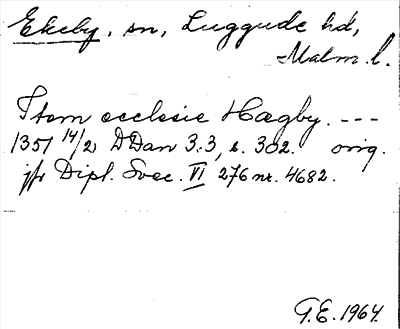 Ekeby, sn, Luggude hd,
Malm. l.
Item ecclesie Hægby. ---
1351 14/2, DDan 3:3, s. 302. orig.
jfr Dipl. Svec. VI 276 nr. 4682.
G.E. 1964.